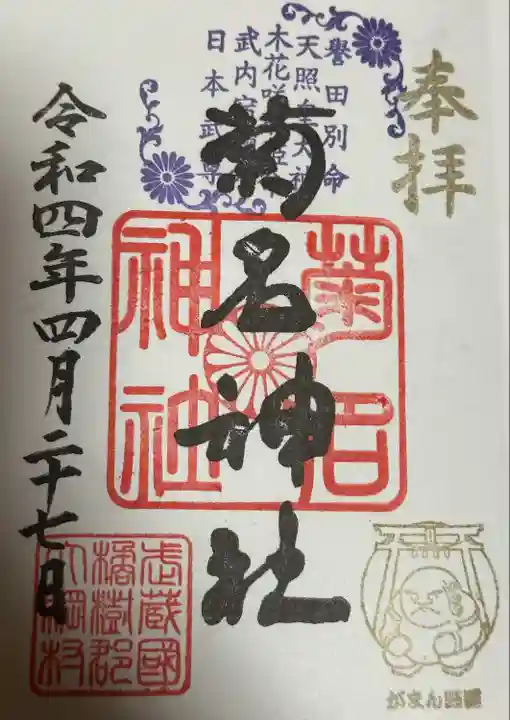 奉拝
誉田別命
天照皇大神
木花咲
武内宿
日本武尊
菊名神社
菊名
神社
令和四年四月二十七日
武蔵國
橘樹郡
がまん